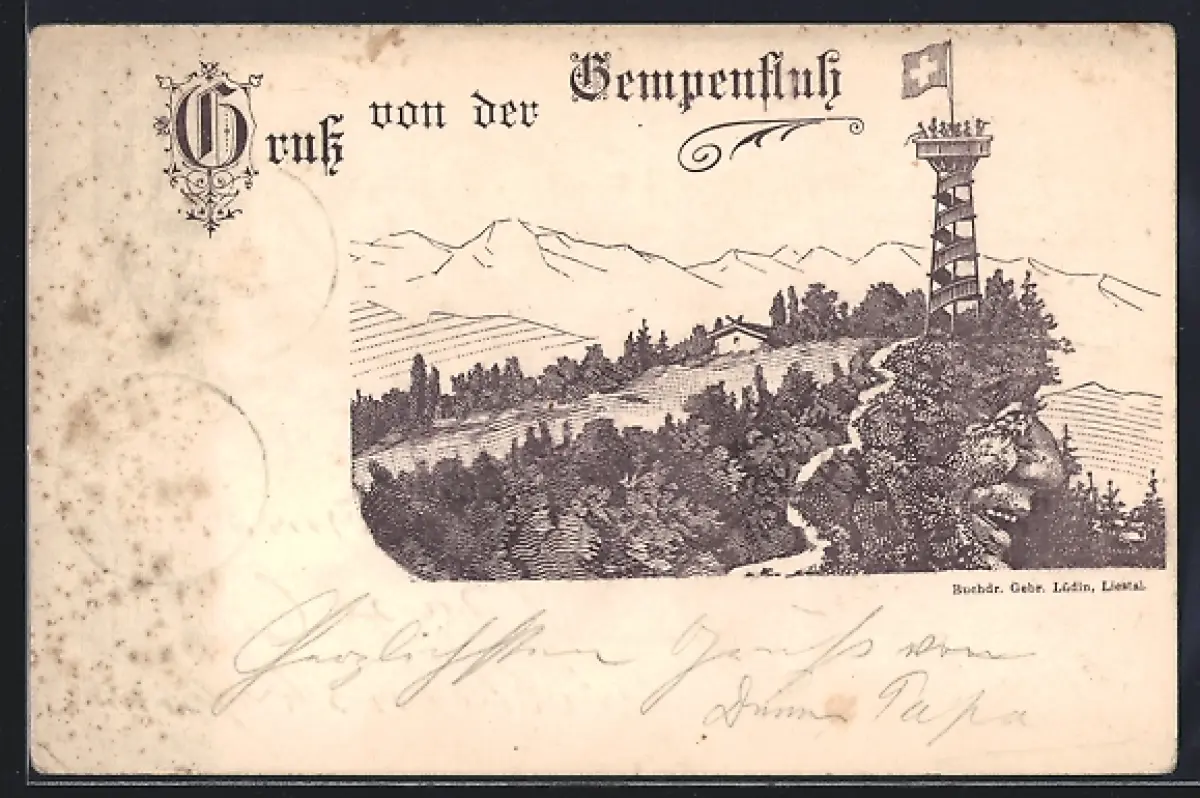 Gruß von der Gempenfluh
Buchdr. Gebr. Lüdin, Liestal.
Herzlichsten Gruss von
Papa